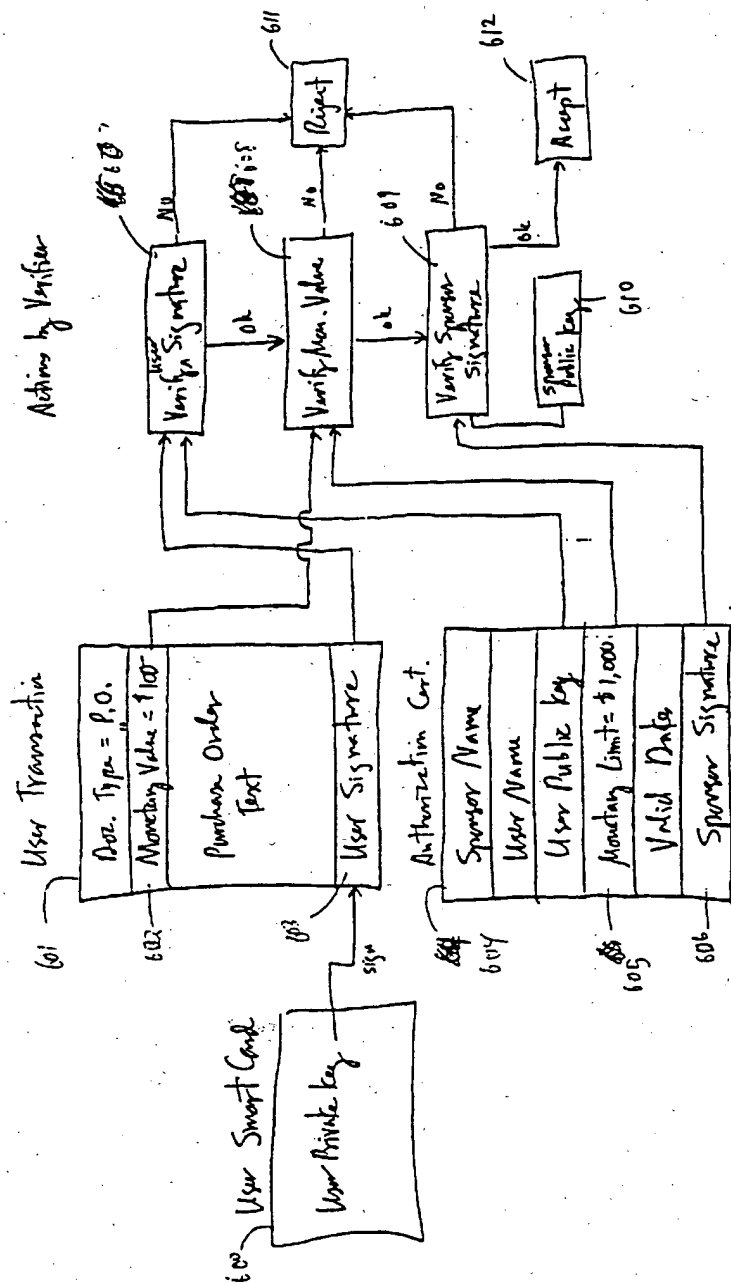 User Smart Card
600
User Private Key
sign
User Transaction
601
Doc. Type = P.O.
Monetary Value = $100
602
Purchase Order
Text
603
User Signature
Authorization Cert.
604
Sponsor Name
User Name
User Public Key
Monetary Limit = $1,000.
605
Valid Dates
Sponsor Signature
606
Actions by Verifier
User
Verify Signature
No
Ok
Verify Mon. Value
No
Ok
609
Verify Sponsor
Signature
No
Ok
Sponsor
Public Key
610
Reject
611
Accept
612